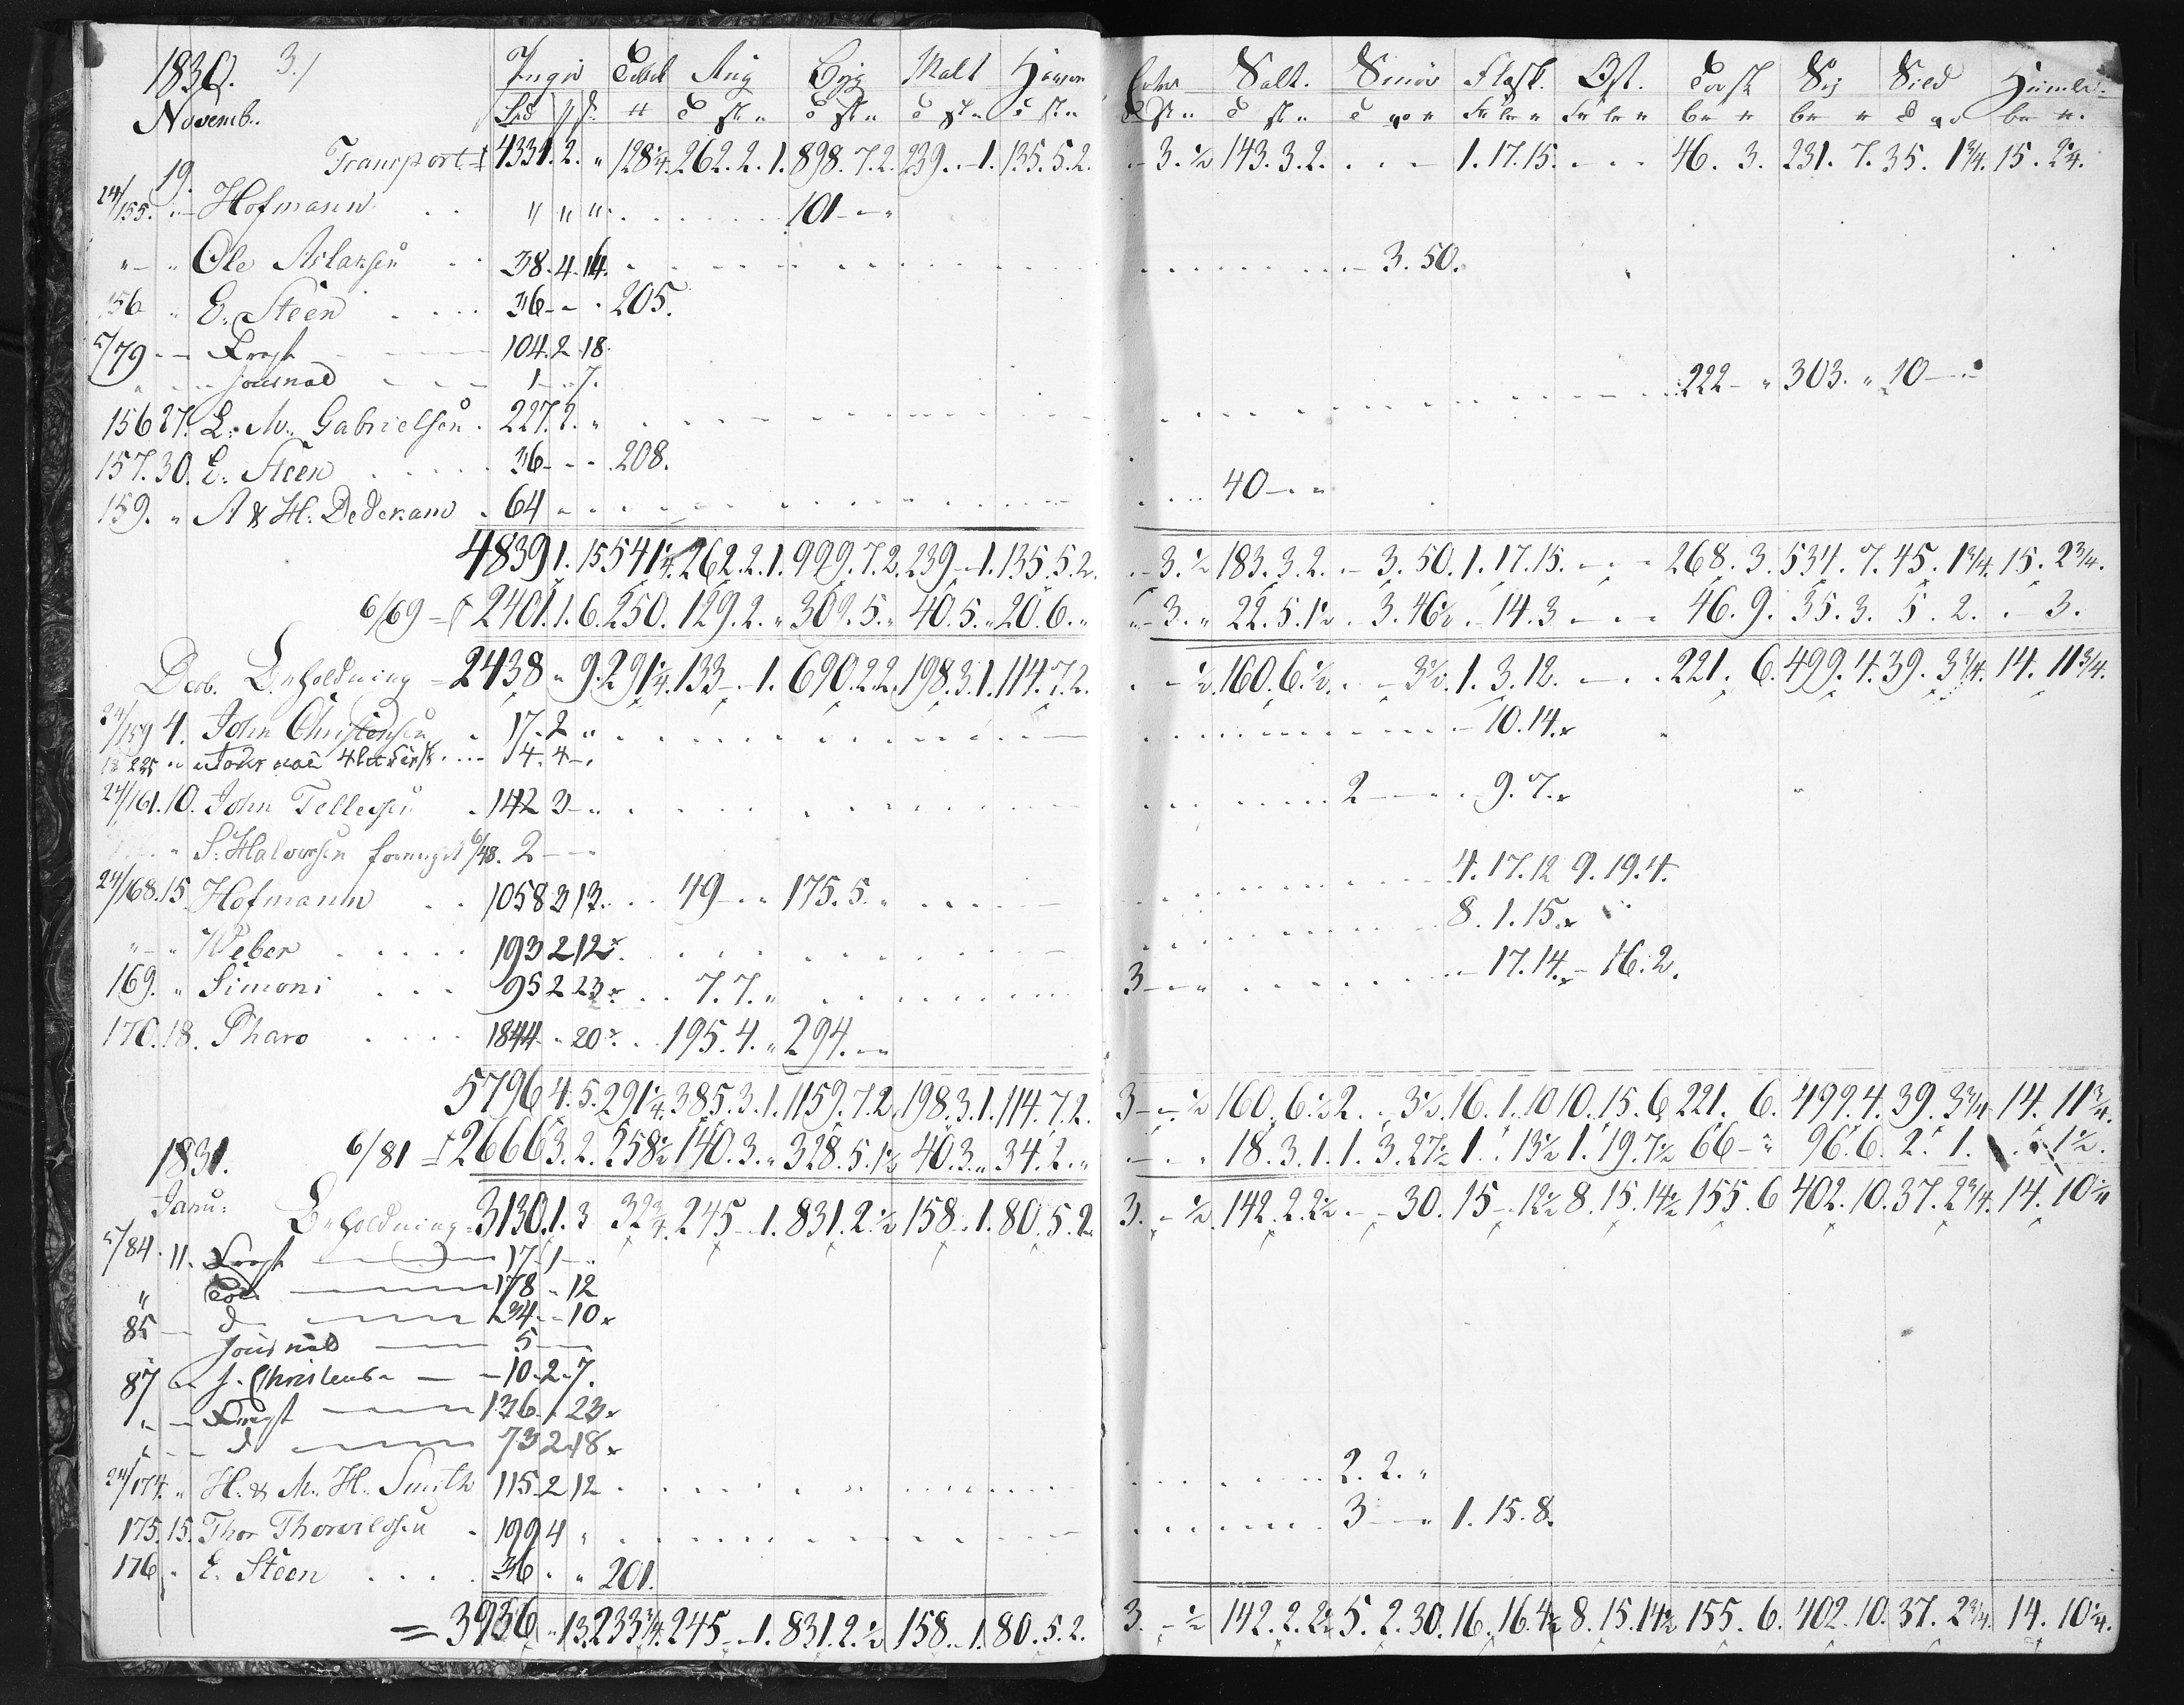 1830. 3./ Penge Toback Rug Byg Malt Havre Erter Salt. Smör Flesk. Ost. Torsk Sej Sild Humle.
Novemb.
19. Transport 4331. 2. " 128 1/4. 262. 2. 1. 898. 7. 2. 239. - 1. 135. 5. 2. - 3. 1/2 143. 3. 2. 1. 17. 15. 46. 3. 231. 7. 35. 1 3/4. 15. 2 3/4.
24/155. " Hofmann " " " 101 - -
" - " Ole Aslaksen 38. 4. 14. 3. 50.
156 " E. Steen 36 - - 205.
5/79 - - Fragt 104. 2. 18.
" - - Journal 1 - 7.
156 27. L. M. Gabrielsen 227. 2. " 222 - " 303. " 10 - -
157. 30. E. Steen 36 - - 208.
159. " A & H. Dedekam 64 40 - -
4839 1. 15. 541 1/4. 262. 2. 1. 999. 7. 2. 239 - 1. 135. 5. 2. - 3. 1/2 183. 3. 2. - 3. 50. 1. 17. 15. 268. 3. 534. 7. 45. 1 3/4. 15. 2 3/4.
6/69 = 2401. 1. 6. 250. 129. 2. " 309. 5. " 40. 5. " 20. 6. " " 3. " 22. 5. 1 1/2. 3. 46 1/2. 14. 3 46. 9. 35. 3. 5. 2. . 3.
Decb. Beholdning = 2438 " 9. 291 1/4. 133 - 1. 690. 2. 2. 198. 3. 1. 114. 7. 2. - 1/2. 160. 6. 1/2. - 3 1/2. 1. 3. 12. 221. 6. 499. 4. 39. 3 3/4. 14. 11 3/4.
24/159 4. John Christensen 17. 2 " 10. 14.
225 " 14. 4 -
24/161. 10. John Tellefsen 142 3 - 2 - - 9. 7.
" S. Halvorsen 6/48. 2 - -
24/168. 15. Hofmann 1058 3 13. 49 - " 175. 5. " 4. 17. 12 9. 19. 4.
" - " Weber 193 2 12 8. 1. 15.
169. " Simoni 95 2 23 7. 7. " 3 - - 17. 14. - 16. 2.
170. 18. Pharo 1844 - 20 195. 4. " 294. - -
5796 4. 5. 291 1/4. 385. 3. 1. 1159. 7. 2. 198. 3. 1. 114. 7. 2. 3 - 1/2 160. 6. 1/2 2. - 3 1/2. 16. 1. 10 10. 15. 6 221. 6. 499. 4. 39. 3 3/4 14. 11 3/4.
1831. 6/81 = 2666 3. 2. 258 1/2 140. 3. " 328. 5. 1 1/2 40. 3. " 34. 2. " - - " 18. 3. 1. 1. 3. 27 1/2 1. " 13 1/2 1. 19. 7 1/2 66 - " 96. 6. 2. 1. . 1 1/2.
Janu: Beholdning = 3130. 1. 3 32 3/4. 245 - 1. 831. 2. 1/2 158 - 1. 80. 5. 2 3. - 1/2. 142. 2. 2 1/2. - - 30. 15 - 12 1/2 8. 15. 14 1/2 155. 6 402. 10. 37. 2 3/4. 14. 10 1/4
5/84. 11. Fragt 17. 1 -
" 178 " 12
85 - d 234 - 10
Journal 5
87 J. Christensen 10. 2. 7.
" - Fragt 136. 1 23
" - d 73 2 18
24/174. " H. & M. H. Smith 115. 2 12 2. 2. "
175. 15. Thor Thorvildsen 199 4 " 3 - " 1. 15. 8.
176 " E. Steen 36 " " 201.
= 3936 " 13. 233 3/4. 245 - 1. 831. 2. 1/2 158 - 1. 80. 5. 2. 3. - 1/2 142. 2. 2 1/2 5. 2. 30. 16. 16. 4 1/2 8. 15. 14 1/2 155. 6. 402. 10. 37. 2 3/4. 14. 10 1/4.